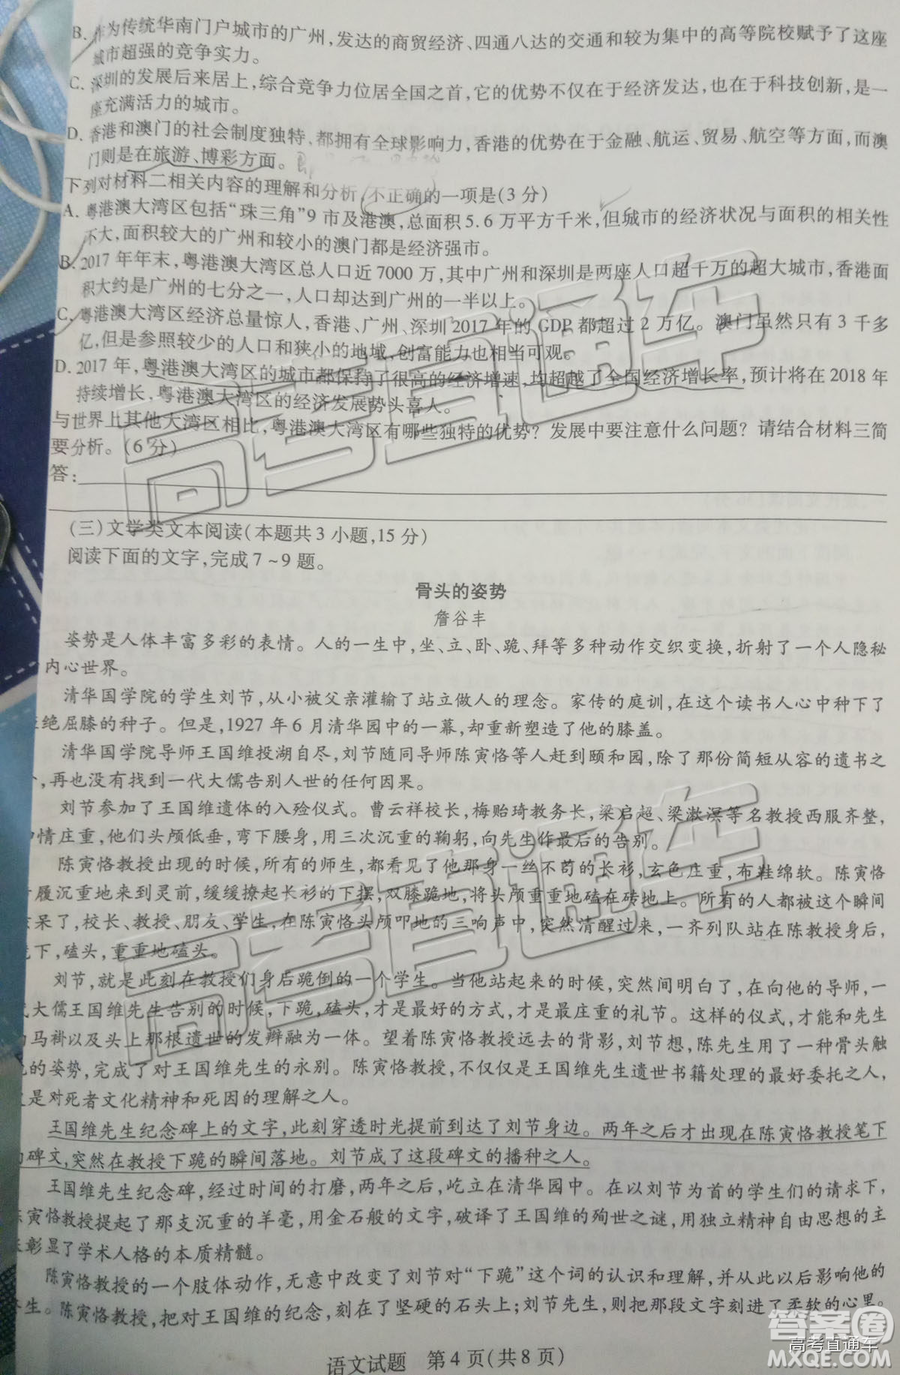 B. 作为传统华南门户城市的广州,发达的商贸经济、四通八达的交通和较为集中的高等院校赋予了这座
城市超强的竞争实力。
C. 深圳的发展后来居上,综合竞争力位居全国之首,它的优势不仅在于经济发达,也在于科技创新,是一
座充满活力的城市。
D. 香港和澳门的社会制度独特、都拥有全球影响力,香港的优势在于金融、航运、贸易、航空等方面,而澳
门则是在旅游、博彩方面。
下列对材料二相关内容的理解和分析,不正确的一项是(3 分)
A. 粤港澳大湾区包括“珠三角”9 市及港澳,总面积 5.6 万平方千米,但城市的经济状况与面积的相关性
不大,面积较大的广州和较小的澳门都是经济强市。
B. 2017 年年末,粤港澳大湾区总人口近 7000 万,其中广州和深圳是两座人口超千万的超大城市,香港面
积大约是广州的七分之一,人口却达到广州的一半以上。
C. 粤港澳大湾区经济总量惊人,香港、广州、深圳 2017 年的 GDP 都超过 2 万亿。澳门虽然只有 3 千多
亿,但是参照较少的人口和狭小的地域,创富能力也相当可观。
D. 2017 年,粤港澳大湾区的城市都保持了很高的经济增速,均超越了全国经济增长率,预计将在 2018 年
持续增长,粤港澳大湾区的经济发展势头喜人。
与世界上其他大湾区相比,粤港澳大湾区有哪些独特的优势?发展中要注意什么问题?请结合材料三简
要分析。(6 分)
答:
(三)文学类文本阅读(本题共 3 小题,15 分)
阅读下面的文字,完成 7~9 题。
骨头的姿势
詹谷丰
姿势是人体丰富多彩的表情。人的一生中,坐、立、卧、跪、拜等多种动作交织变换,折射了一个人隐秘
内心世界。
清华国学院的学生刘节,从小被父亲灌输了站立做人的理念。家传的庭训,在这个读书人心中种下了
绝屈膝的种子。但是,1927 年 6 月清华园中的一幕,却重新塑造了他的膝盖。
清华国学院导师王国维投湖自尽,刘节随同导师陈寅恪等人赶到颐和园,除了那份简短从容的遗书之
,再也没有找到一代大儒告别人世的任何因果。
刘节参加了王国维遗体的入殓仪式。曹云祥校长,梅贻琦教务长,梁启超、梁漱溟等名教授西服齐整,
情庄重,他们头颅低垂,弯下腰身,用三次沉重的鞠躬,向先生作最后的告别。
陈寅恪教授出现的时候,所有的师生,都看见了他那身一丝不苟的长衫,玄色庄重,布鞋绵软。陈寅恪
履沉重地来到灵前,缓缓撩起长衫的下摆,双膝跪地,将头颅重重地磕在砖地上。所有的人都被这个瞬间
呆了,校长、教授、朋友、学生,在陈寅恪头颅叩地的三响声中,突然清醒过来,一齐列队站在陈教授身后,
下,磕头,重重地磕头。
刘节,就是此刻在教授们身后跪倒的一个学生。当他站起来的时候,突然间明白了,在向他的导师,一
大儒王国维先生告别的时候,下跪,磕头,才是最好的方式,才是最庄重的礼节。这样的仪式,才能和先生
马褂以及头上那根遗世的发辫融为一体。望着陈寅恪教授远去的背影,刘节想,陈先生用了一种骨头触
的姿势,完成了对王国维先生的永别。陈寅恪教授,不仅仅是王国维先生遗世书籍处理的最好委托之人,
是对死者文化精神和死因的理解之人。
王国维先生纪念碑上的文字,此刻穿透时光提前到达了刘节身边。两年之后才出现在陈寅恪教授笔下
碑文,突然在教授下跪的瞬间落地。刘节成了这段碑文的播种之人。
王国维先生纪念碑,经过时间的打磨,两年之后,屹立在清华园中。在以刘节为首的学生们的请求下,
陈寅恪教授提起了那支沉重的羊毫,用金石般的文字,破译了王国维的殉世之谜,用独立精神自由思想的主
张彰显了学术人格的本质精髓。
陈寅恪教授的一个肢体动作,无意中改变了刘节对“下跪”这个词的认识和理解,并从此以后影响他的
生。陈寅恪教授,把对王国维的纪念,刻在了坚硬的石头上;刘节先生,则把那段文字刻进了柔软的心里。
语文试题 第 4 页(共 8 页)
高考直通车
高考直通车
答案圈
高考直通车
MXQE.COM